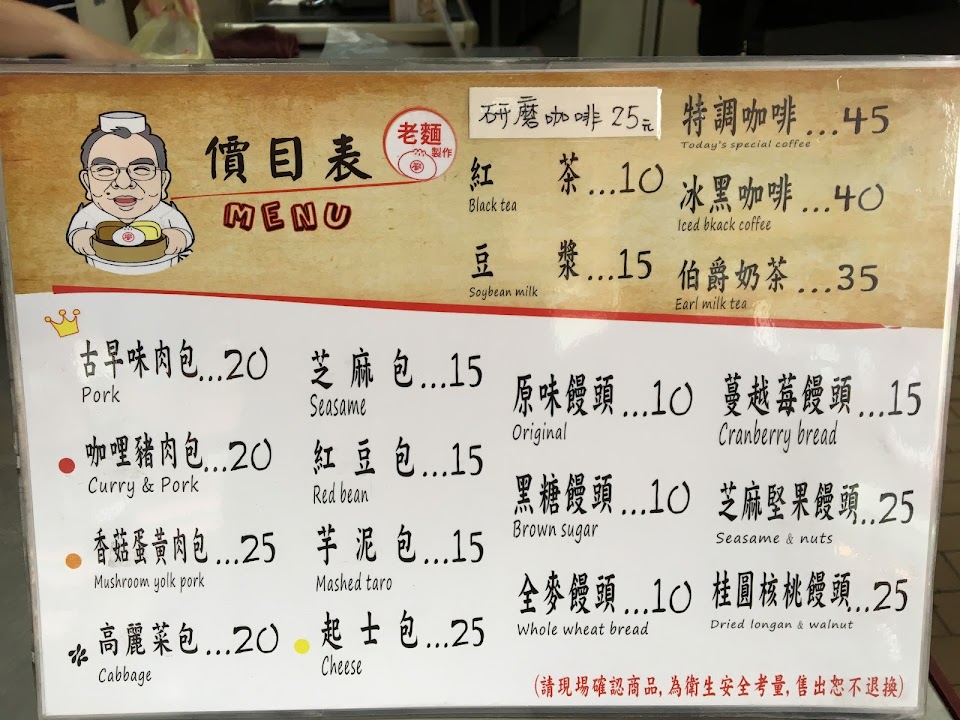 價目表
MENU
老麵
製作
研磨咖啡 25元
紅茶...10
Black tea
豆漿...15
Soybean milk
特調咖啡...45
Today's special coffee
冰黑咖啡...40
Iced bkack coffee
伯爵奶茶...35
Earl milk tea
古早味肉包...20
Pork
咖哩豬肉包...20
Curry & Pork
香菇蛋黃肉包...25
Mushroom yolk pork
高麗菜包...20
Cabbage
芝麻包...15
Seasame
紅豆包...15
Red bean
芋泥包...15
Mashed taro
起士包...25
Cheese
原味饅頭...10
Original
黑糖饅頭...10
Brown sugar
全麥饅頭...10
Whole wheat bread
蔓越莓饅頭...15
Cranberry bread
芝麻堅果饅頭...25
Seasame & nuts
桂圓核桃饅頭...25
Dried longan & walnut
(請現場確認商品,為衛生安全考量,售出恕不退換)